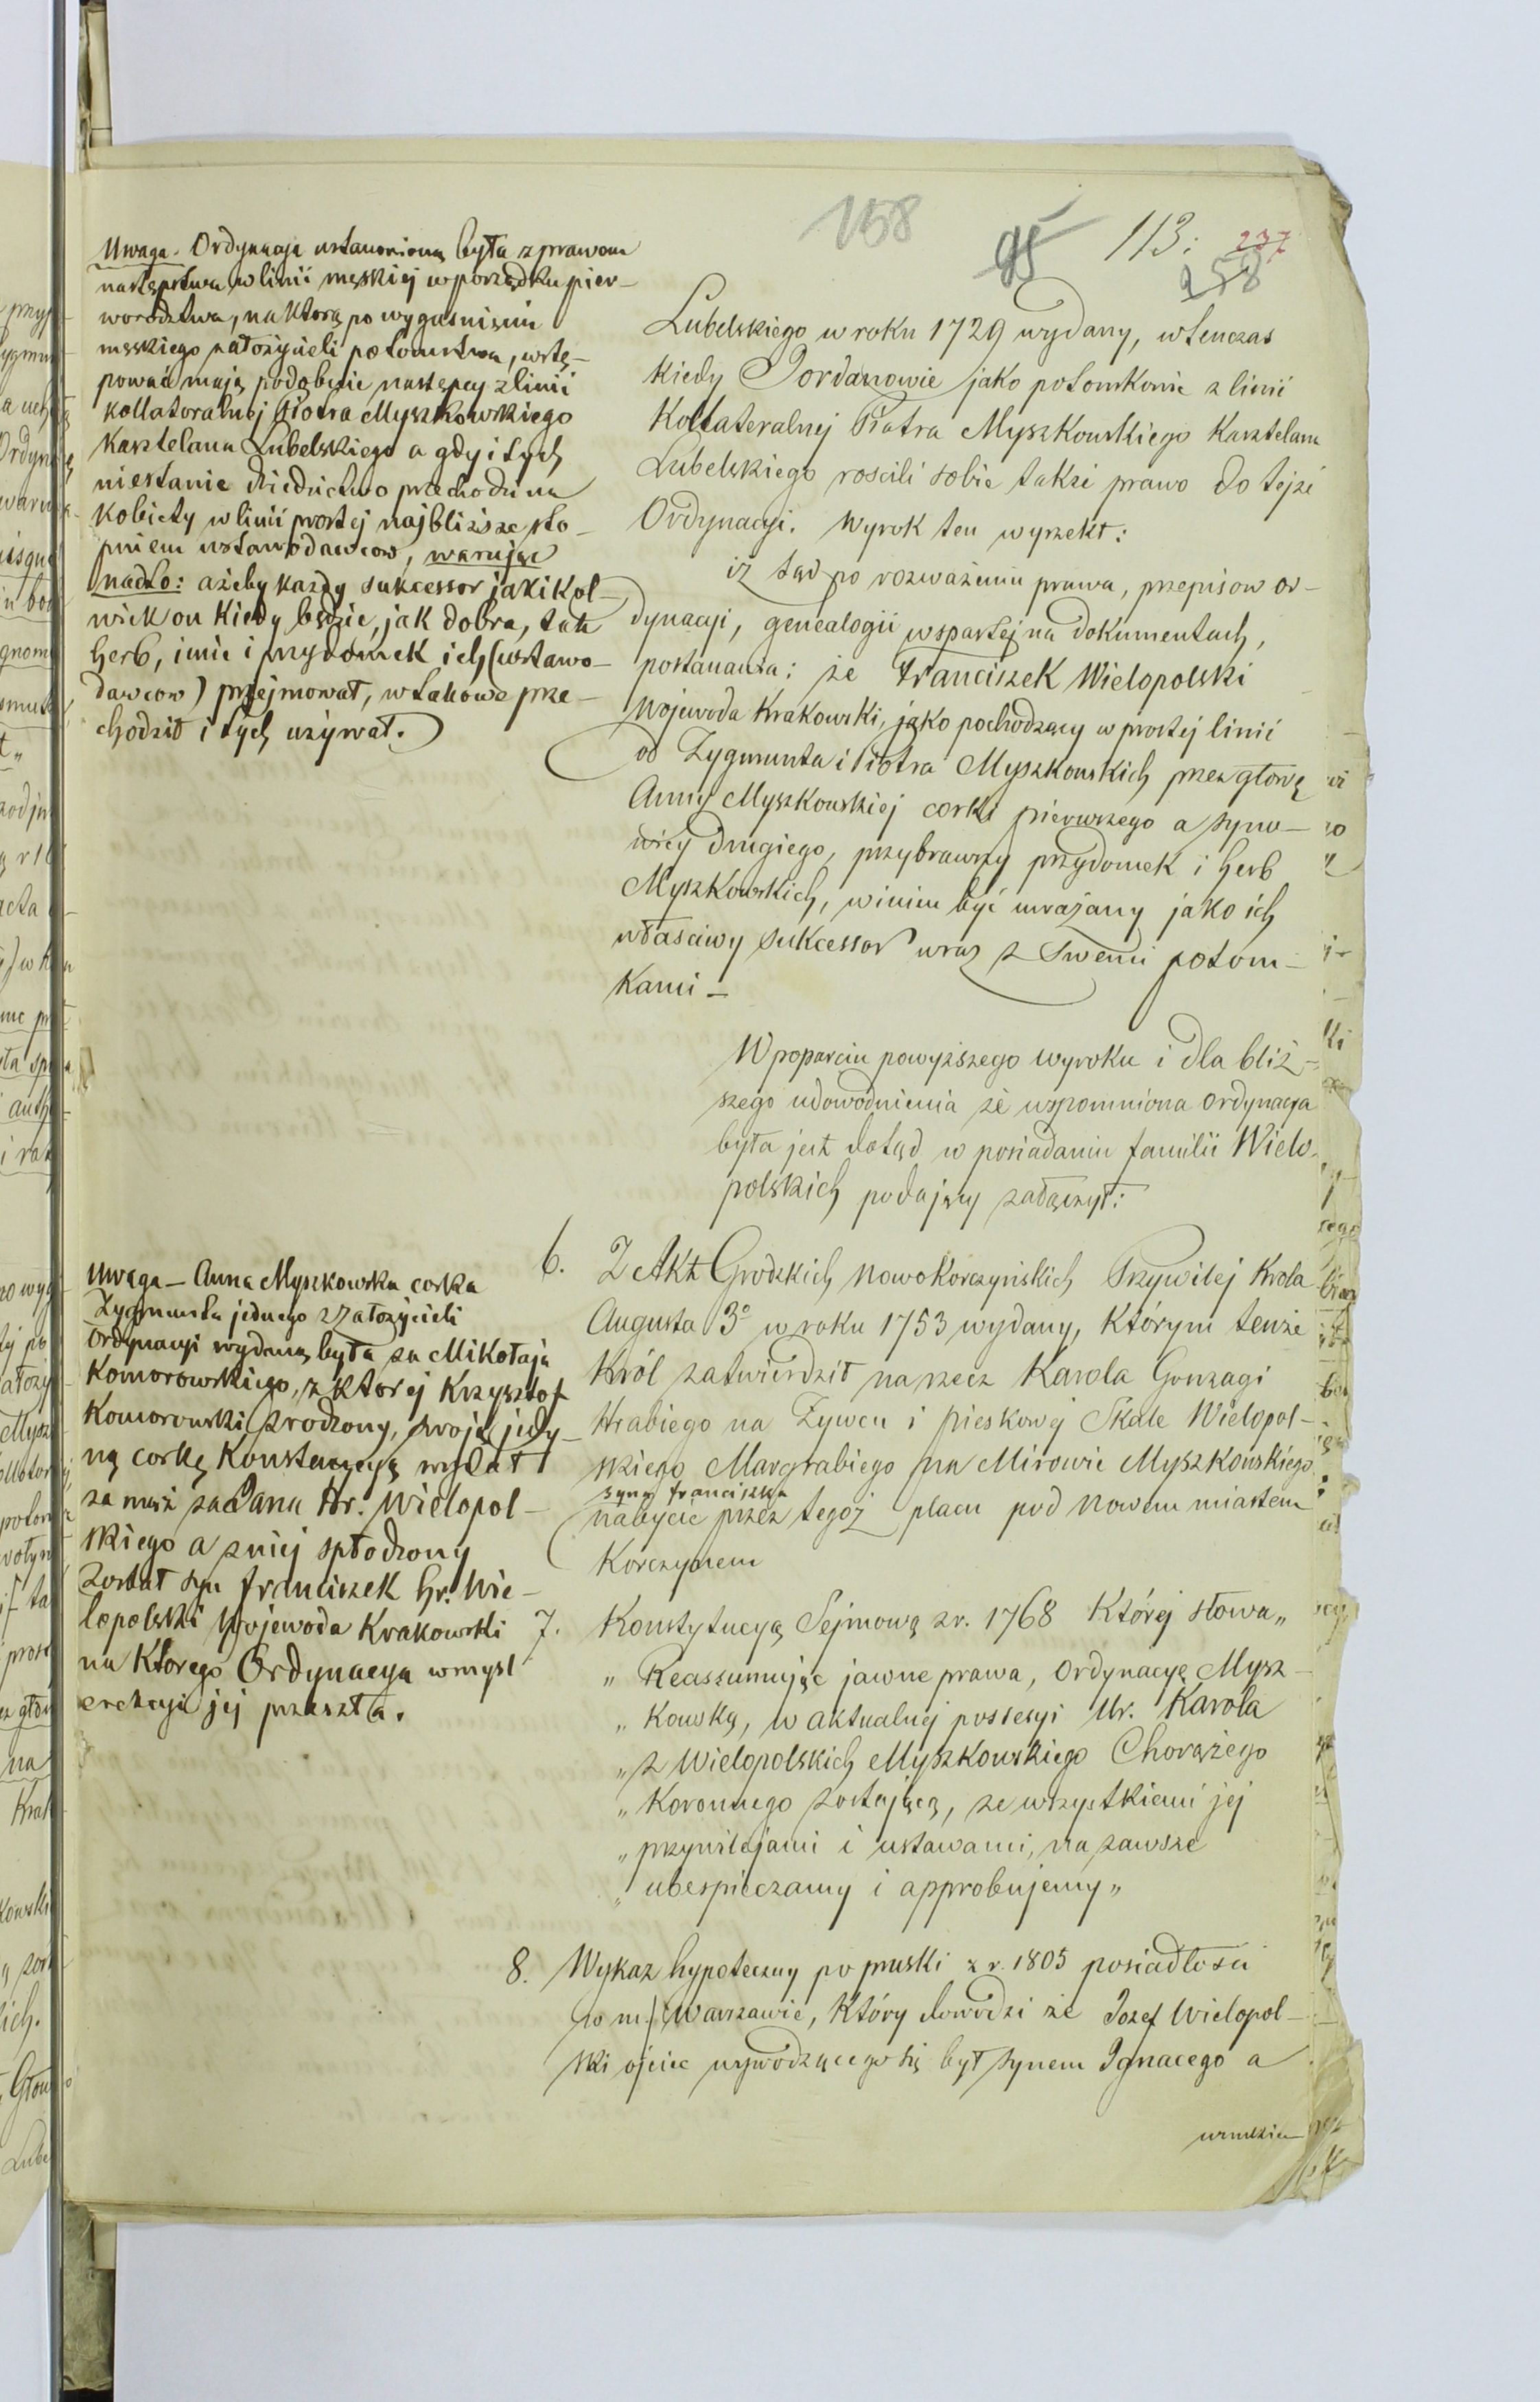 158
95
113.
237
258
Uwaga. Ordynacja ustanowioną była z prawem
następstwa w linii męskiej w porządku pier-
worodztwa, na którą po wygaśnięciu
męskiego założycieli potomstwa, wstę-
pować mają podobnie następcy z linii
kollateralnej Piotra Myszkowskiego
Kasztelana Lubelskiego a gdy i tych
niestanie dziedzictwo przechodzi na
Kobiety w linii prostej najbliższe sto-
pniem ustawodawcow, warując
nadto: ażeby każdy sukcessor jakikol-
wiek on kiedy będzie, jak dobra, tak
herb, imie i przydomek ich (ustawo-
dawcow) przejmował, w takowe prze-
chodził i tych używał.
Lubelskiego w roku 1729 wydany, wtenczas
kiedy Jordanowie jako potomkowie z linii
Kollateralnej Piotra Myszkowskiego Kasztelana
Lubelskiego rościli sobie także prawo do tejże
Ordynacyi. Wyrok ten wyrzekł:
iż sąd po rozważeniu prawa, przepisow or-
dynacyi, genealogii wspartej na dokumentach,
postanawia: że Franciszek Wielopolski
Wojewoda Krakowski, jako pochodzący w prostej linii
od Zygmunta i Piotra Myszkowskich przez głowę
Anny Myszkowskiej corki pierwszego a syno-
wicy drugiego, przybrawszy przydomek i herb
Myszkowskich, winien być uważany jako ich
właściwy sukcessor wraz z swemi potom-
kami –
W poparciu powyższego wyroku i dla bliż-
szego udowodnienia że wspomniona ordynacya
była i jest dotąd w posiadaniu familii Wielo-
polskich podający załączył:
Uwaga – Anna Myszkowska corka
Zygmunta jednego z założycieli
Ordynacyi wydaną była za Mikołaja
Komorowskiego, z ktorej Krzysztof
Komorowski zrodzony, swoją jedy-
ną corkę Konstancyą wydał
za mąż za Jana Hr. Wielopol-
skiego a z niej spłodzony
został syn Franciszek Hr. Wie-
lopolski Wojewoda Krakowski
na ktorego Ordynacya w myśl
erekcyi jej przeszła.
6. Z Akt Grodzkich Nowokorczyńskich Przywilej Krola
Augusta 3° w roku 1753 wydany, którym tenże
Król zatwierdził na rzecz Karola Gonzagi
Hrabiego na Żywcu i Pieskowej Skale Wielopol-
skiego Margrabiego na Mirowie Myszkowskiego
syna Franciszka
nabycie przez tegoż placu pod Nowem miastem
Korczynem
7. Konstytucyą Sejmową z r. 1768 której słowa „
„ Reassumując jawne prawa, ordynacyę Mysz-
„ kowską, w aktualnej possesyi Ur. Karola
„ z Wielopolskich Myszkowskiego Chorążego
„ Koronnego zostającą, ze wszystkiemi jej
„ przywilejami i ustawami, na zawsze
„ ubespieczamy i approbujemy „
8. Wykaz hypoteczny po pruski z r. 1805 posiadłości
w m. Warszawie, który dowodzi że Jozef Wielopol-
ski ojciec wywodzącego się był synem Ignacego a